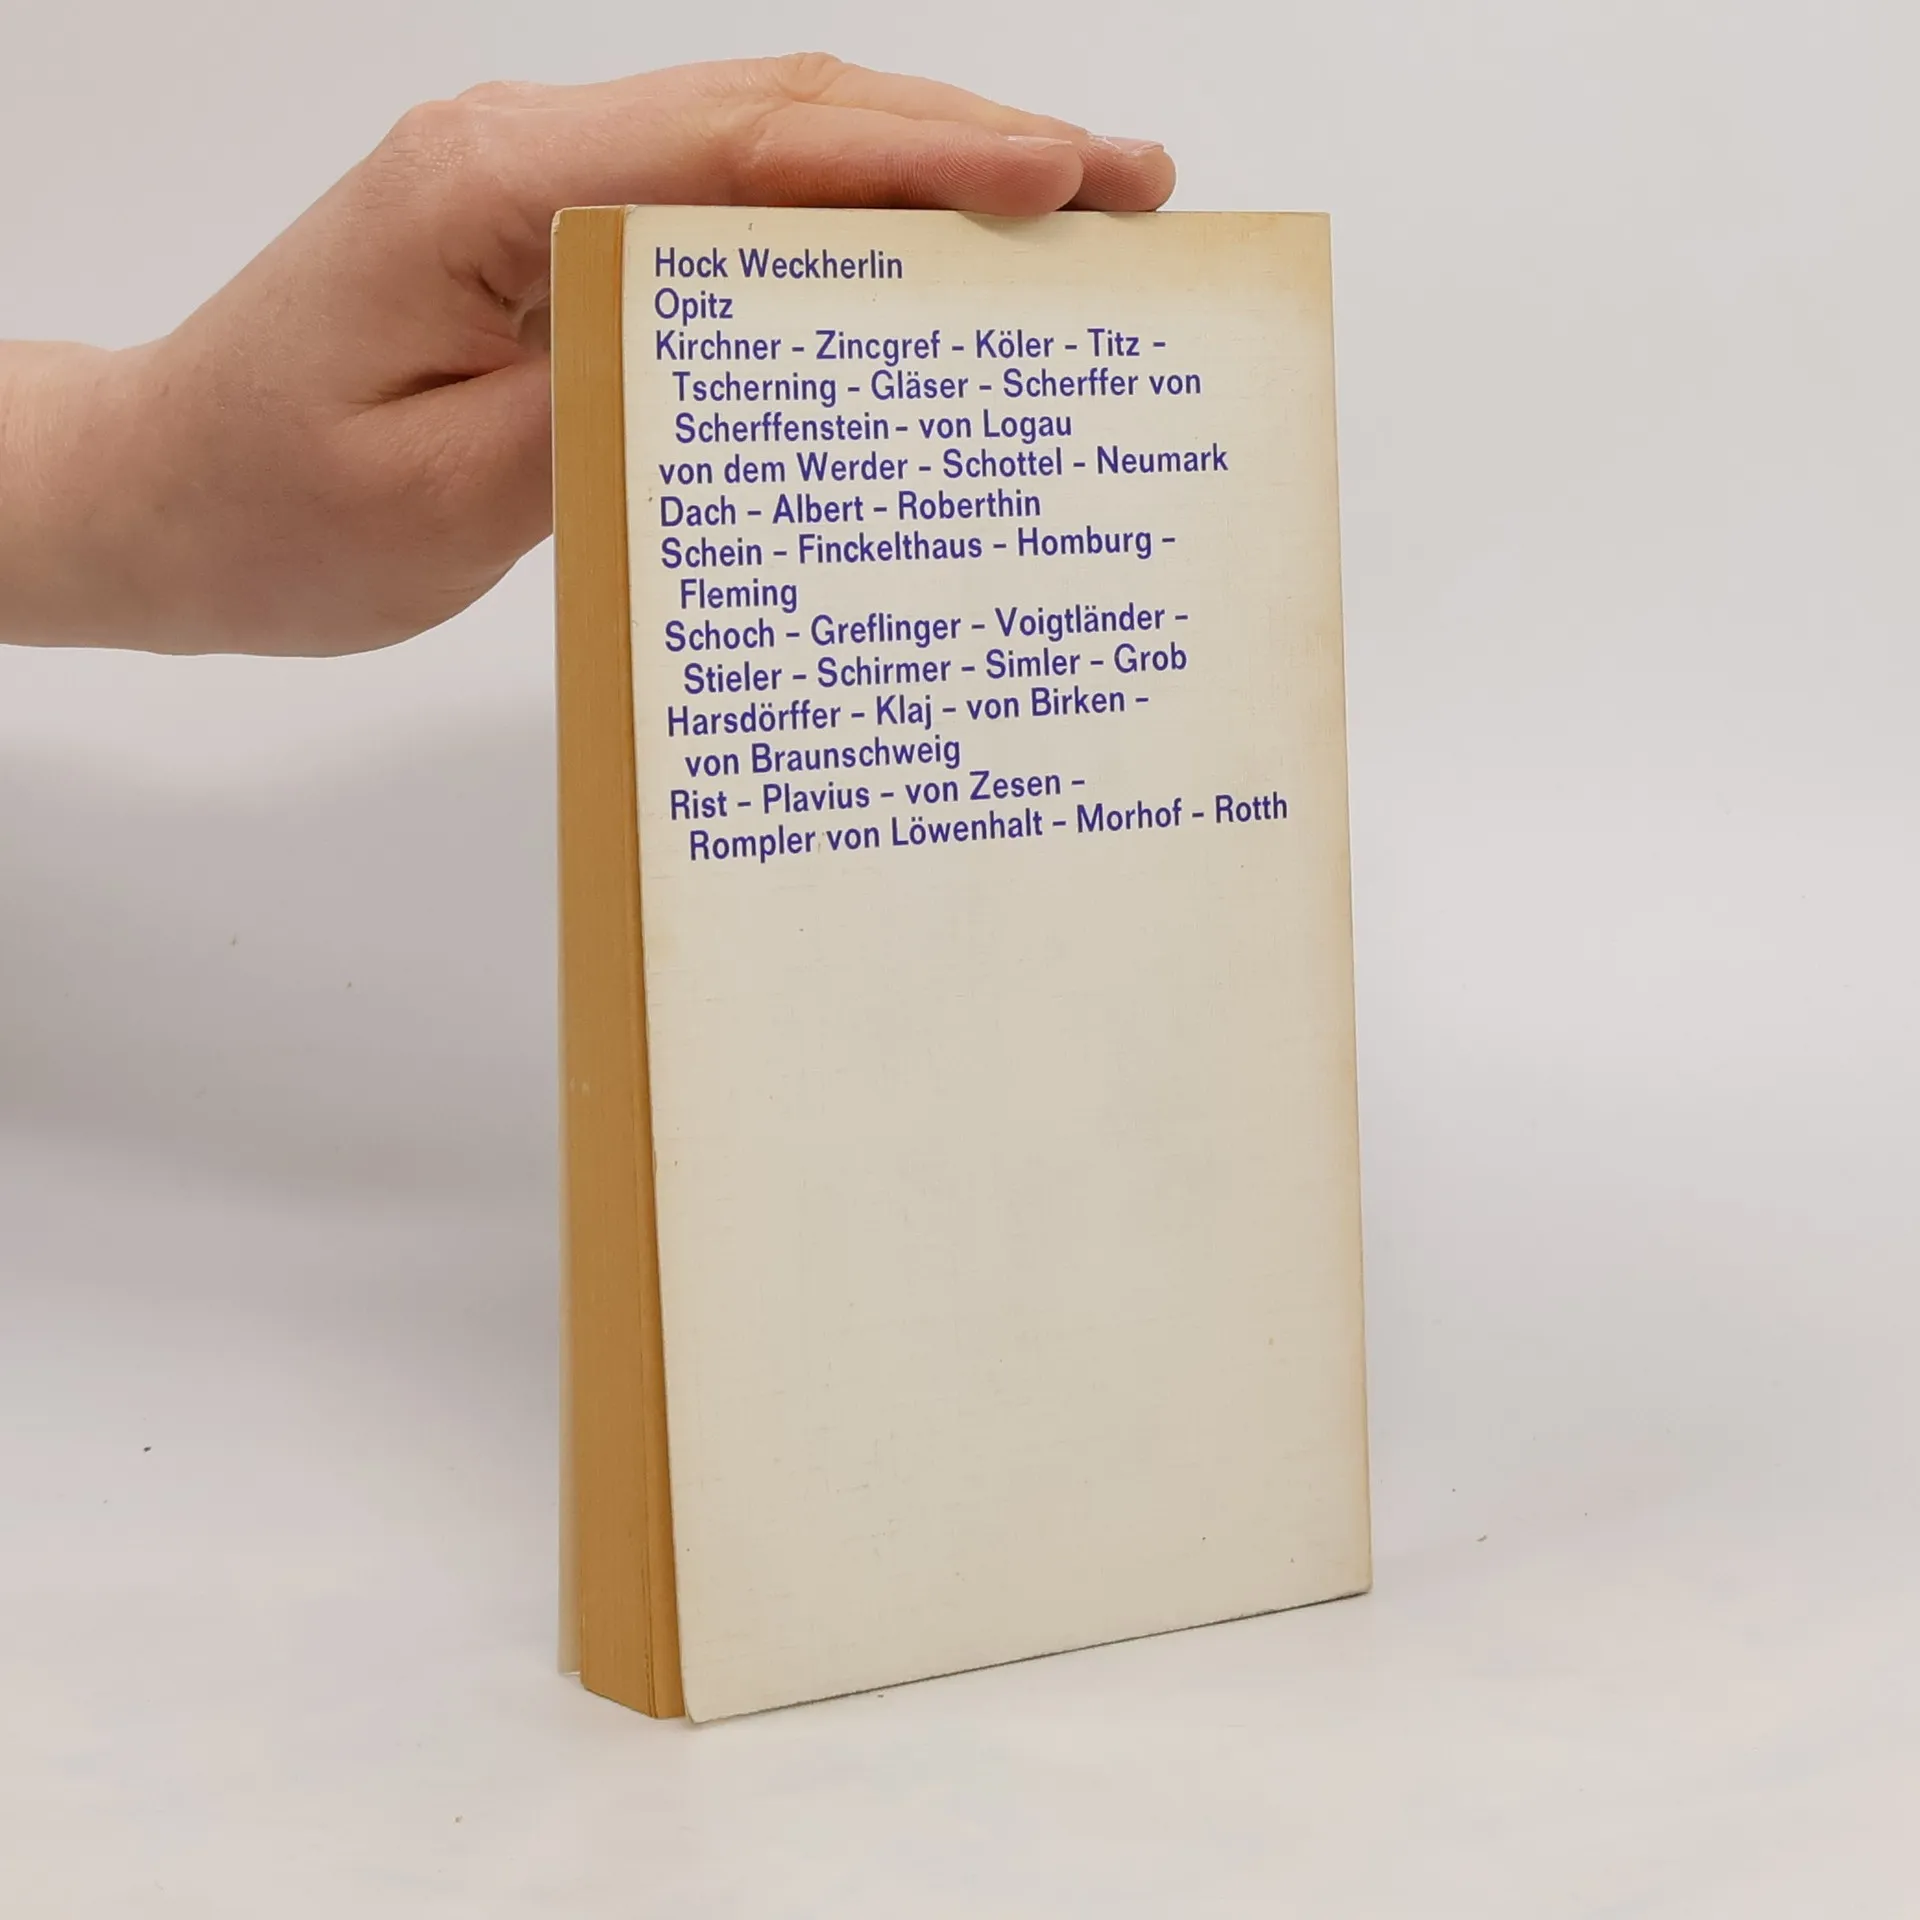 Hock Weckherlin
Opitz
Kirchner – Zincgref – Köler – Titz –
Tscherning – Gläser – Scherffer von
Scherffenstein – von Logau
von dem Werder – Schottel – Neumark
Dach – Albert – Roberthin
Schein – Finckelthaus – Homburg –
Fleming
Schoch – Greflinger – Voigtländer –
Stieler – Schirmer – Simler – Grob
Harsdörffer – Klaj – von Birken –
von Braunschweig
Rist – Plavius – von Zesen –
Rompler von Löwenhalt – Morhof – Rotth